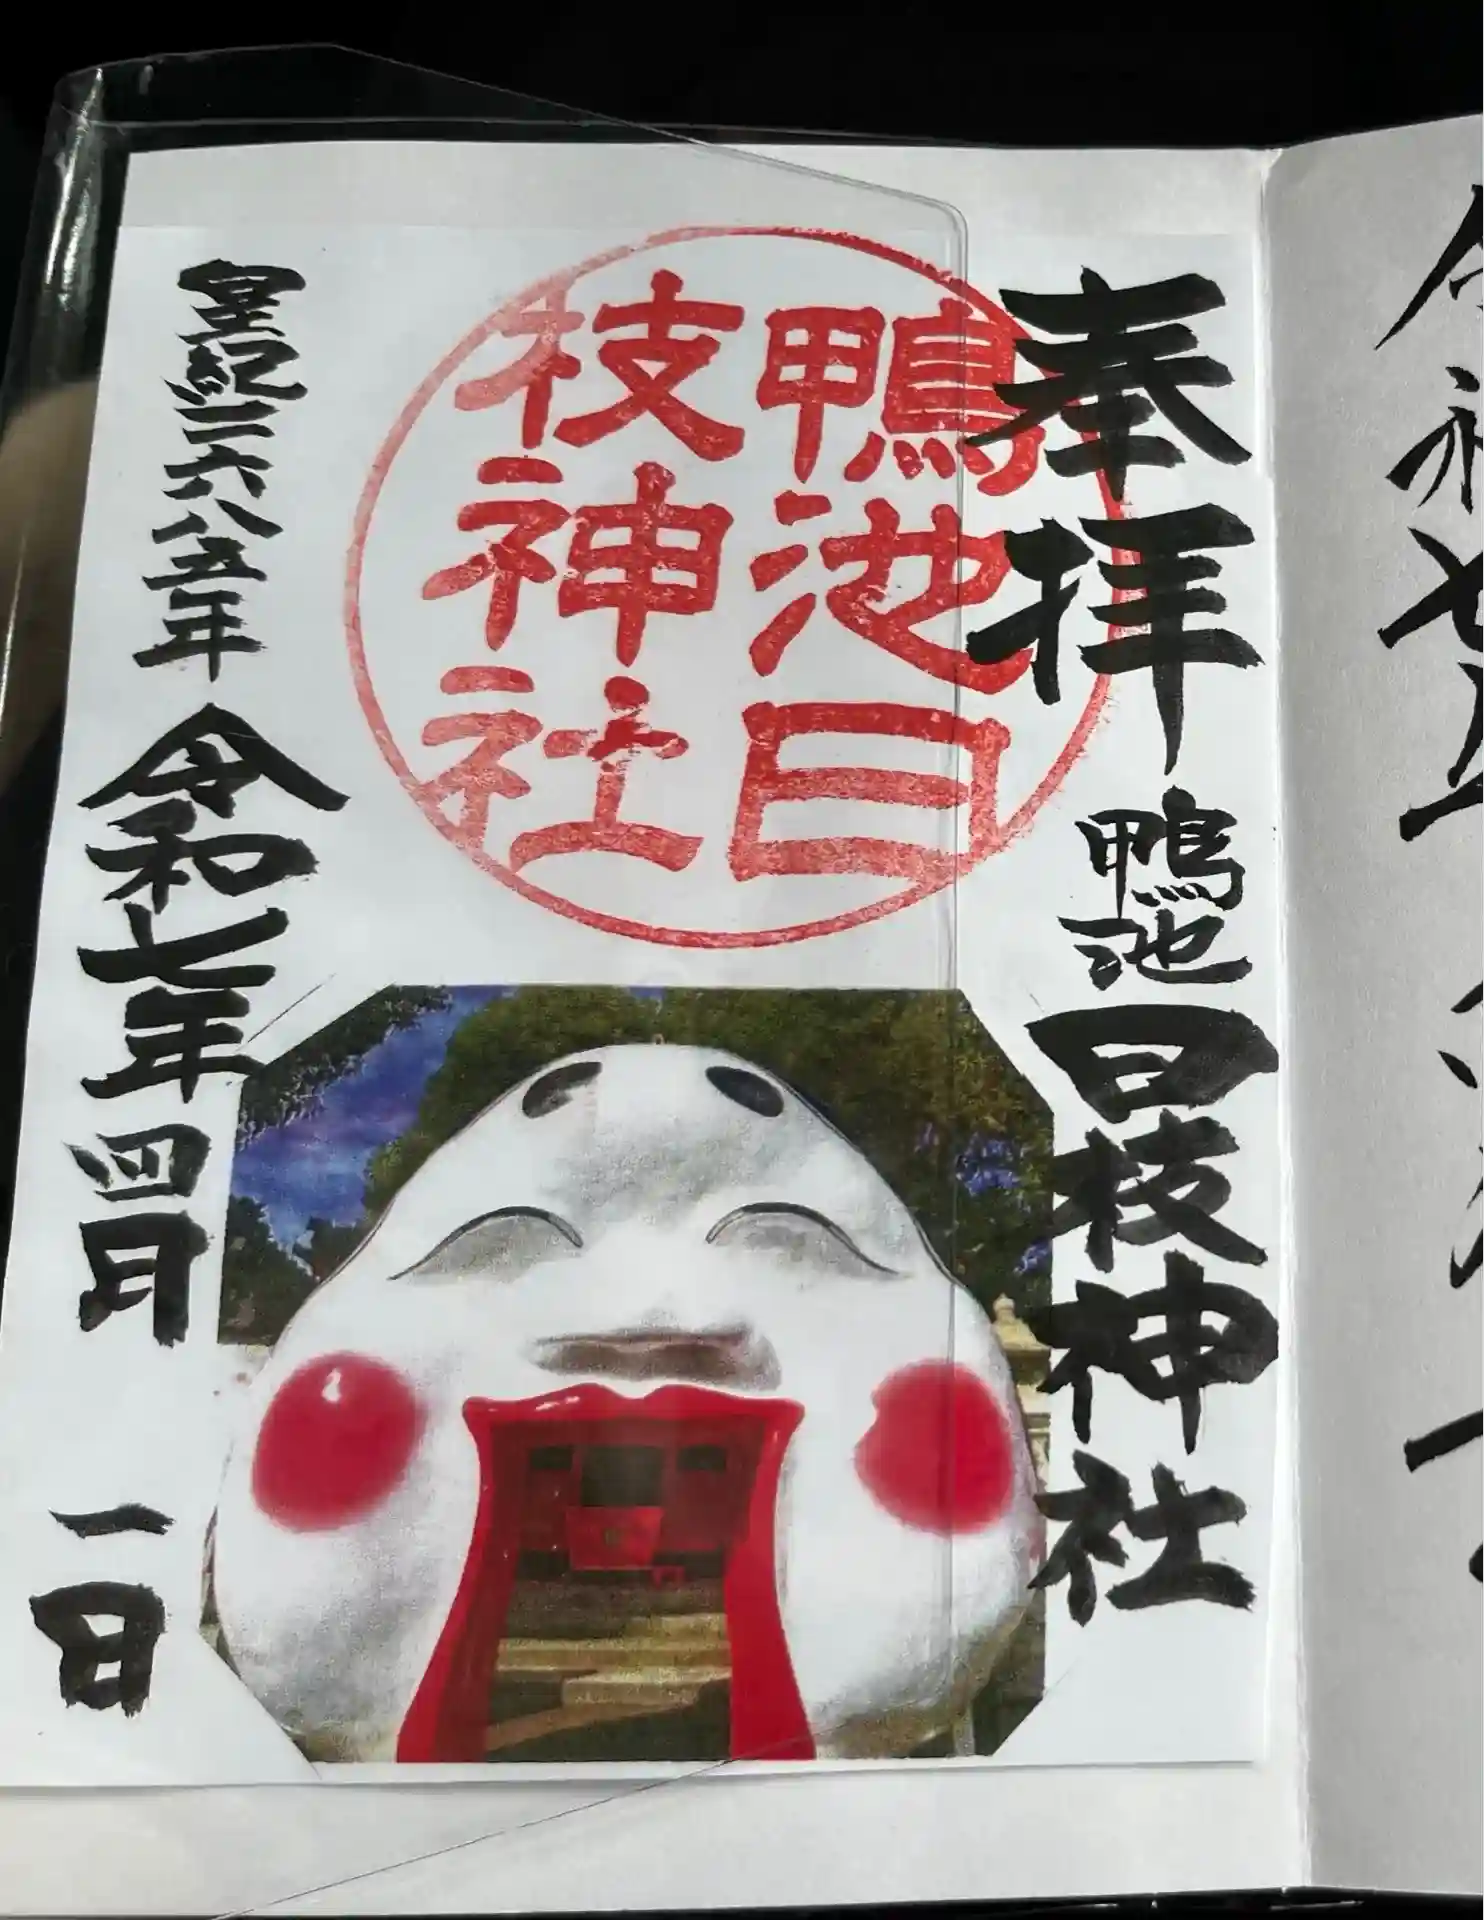 奉拝
鴨池日枝神社
鴨池日
枝神社
皇紀二六八五年
令和七年四月一日